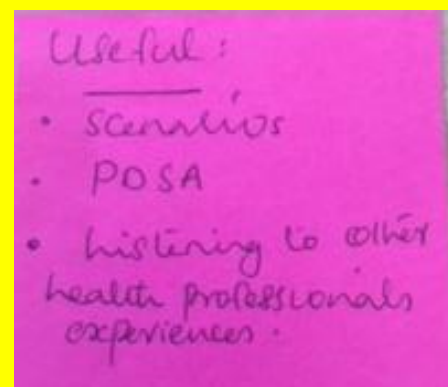 Useful :
• scenarios
• PDSA
• listening to other
health professionals
experiences.